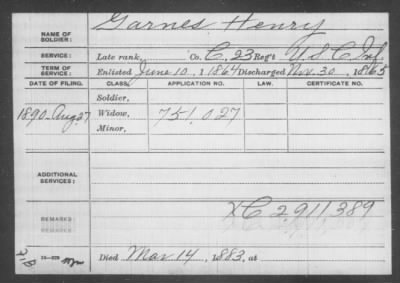 NAME OF SOLDIER: Garnes Henry
SERVICE: Late rank, Co. C, 23 Reg't U.S.C. Inf.
TERM OF SERVICE: Enlisted June 10, 1864 Discharged Nov. 30, 1865
DATE OF FILING. CLASS. APPLICATION NO. LAW. CERTIFICATE NO.
Soldier,
1890-Aug 27 Widow, 751.027
Minor,
ADDITIONAL SERVICES:
XC 2911389
REMARKS:
Died Mar. 14, 1883, at